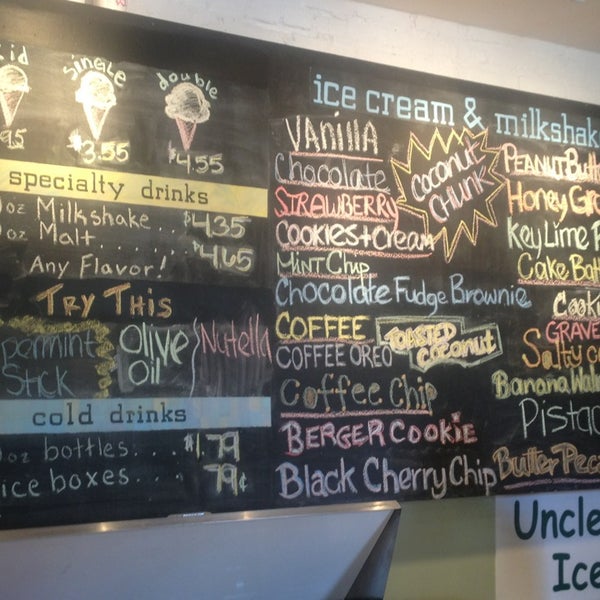 kid single double
95 $3.55 $4.55
specialty drinks
oz Milkshake... $4.35
oz Malt..... $4.65
Any Flavor!
Try This
Stick
Olive
Oil
Nutella
cold drinks
oz bottles... $1.79
ice boxes... 79¢
ice cream & milkshak
Vanilla
Chocolate
Strawberry
Cookies + Cream
Mint Chip
Chocolate Fudge Brownie
Coffee
Coffee Oreo
Coffee Chip
Berger Cookie
Black Cherry Chip
Coconut
Chunk
Toasted
Coconut
Peanut Butt
Honey Gra
Key Lime P
Cake Batt
Cooki
Grave
Salty c
Banana Waln
Pistac
Butter Peca
Uncle
Ice